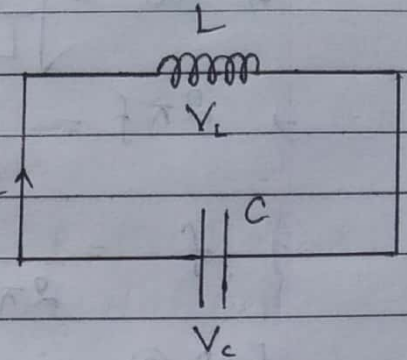 L
V_L
C
V_c